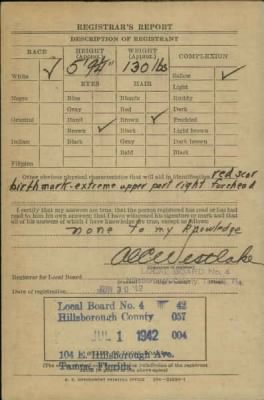 REGISTRAR'S REPORT
DESCRIPTION OF REGISTRANT
RACE HEIGHT (Approx.) WEIGHT (Approx.) COMPLEXION
White ✓ 5' 9½" 130 lbs Sallow ✓
EYES HAIR Light
Negro Blue Blonde Ruddy
Gray Red Dark
Oriental Hazel Brown ✓ Freckled
Brown ✓ Black Light brown
Indian Black Gray Dark brown
Bald Black
Filipino
Other obvious physical characteristics that will aid in identification red scar
birthmark-extreme upper part right forehead
I certify that my answers are true; that the person registered has read or has had
read to him his own answers; that I have witnessed his signature or mark and that
all of his answers of which I have knowledge are true, except as follows:
none to my knowledge
Westlake
LOCAL BOARD No. 4
Registrar for Local Board
Hillsborough County, Tampa, Fla.
Date of registration JUN 30 '42
Local Board No. 4 42
Hillsborough County 057
JUL 1 1942 004
104 E. Hillsborough Ave.
Tampa, Florida